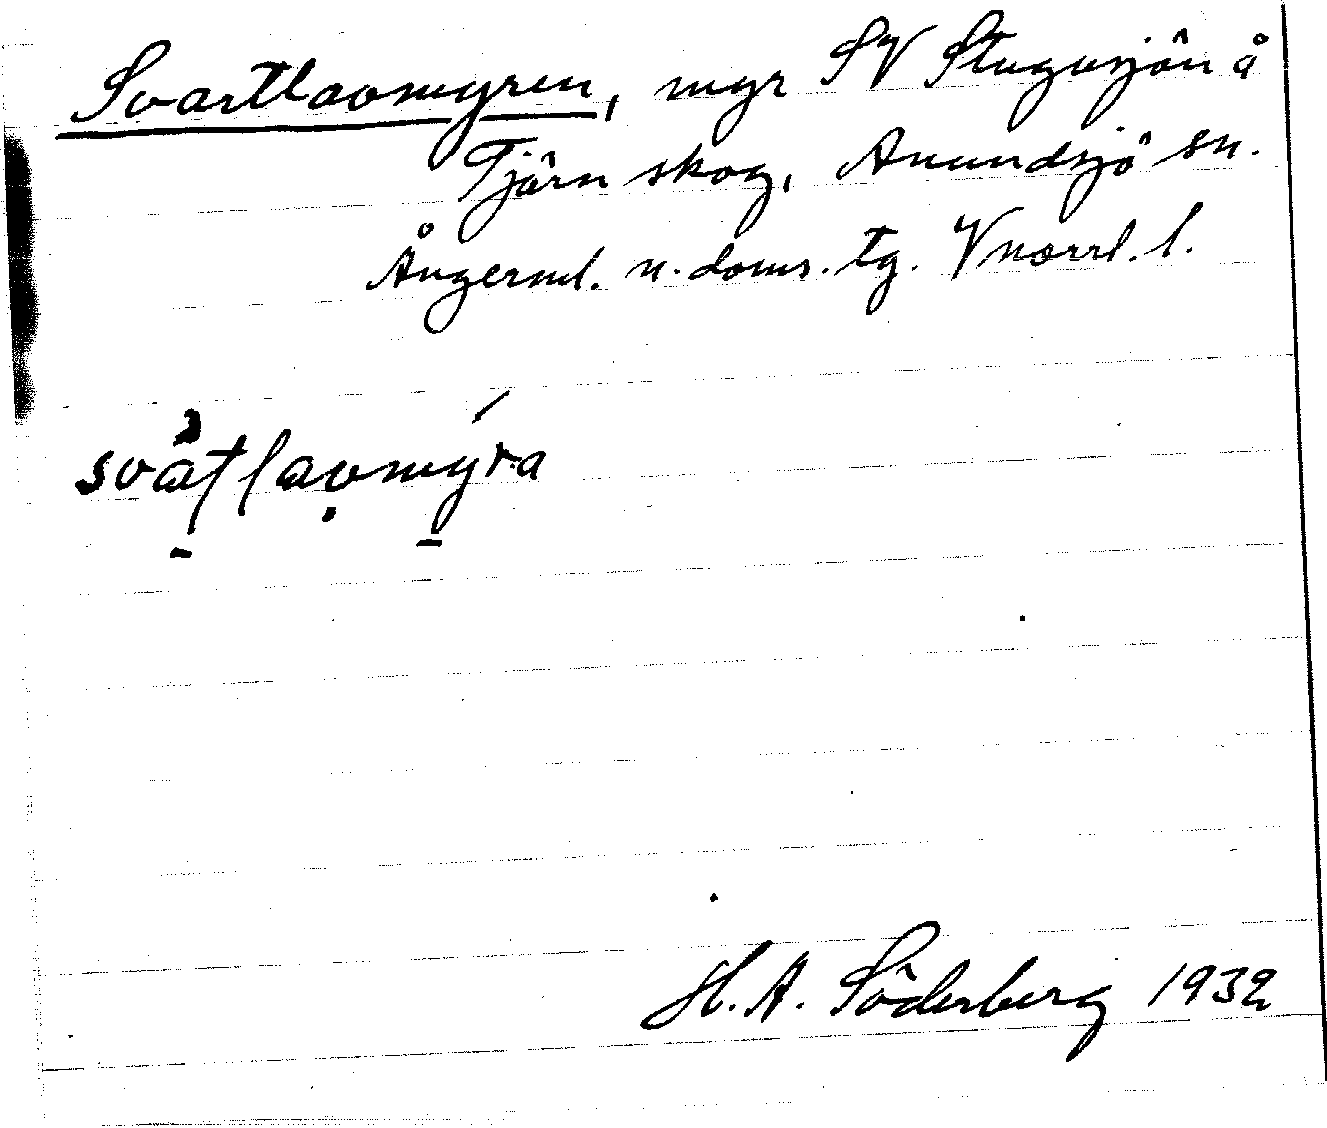 Svartlavmyren, myr SV Stugusjön å
Tjärn skog, Anundsjö sn.
Ångerml. n. doms. tg. Vnorrl. l.
svåtlavmýra
H. A. Söderberg 1932